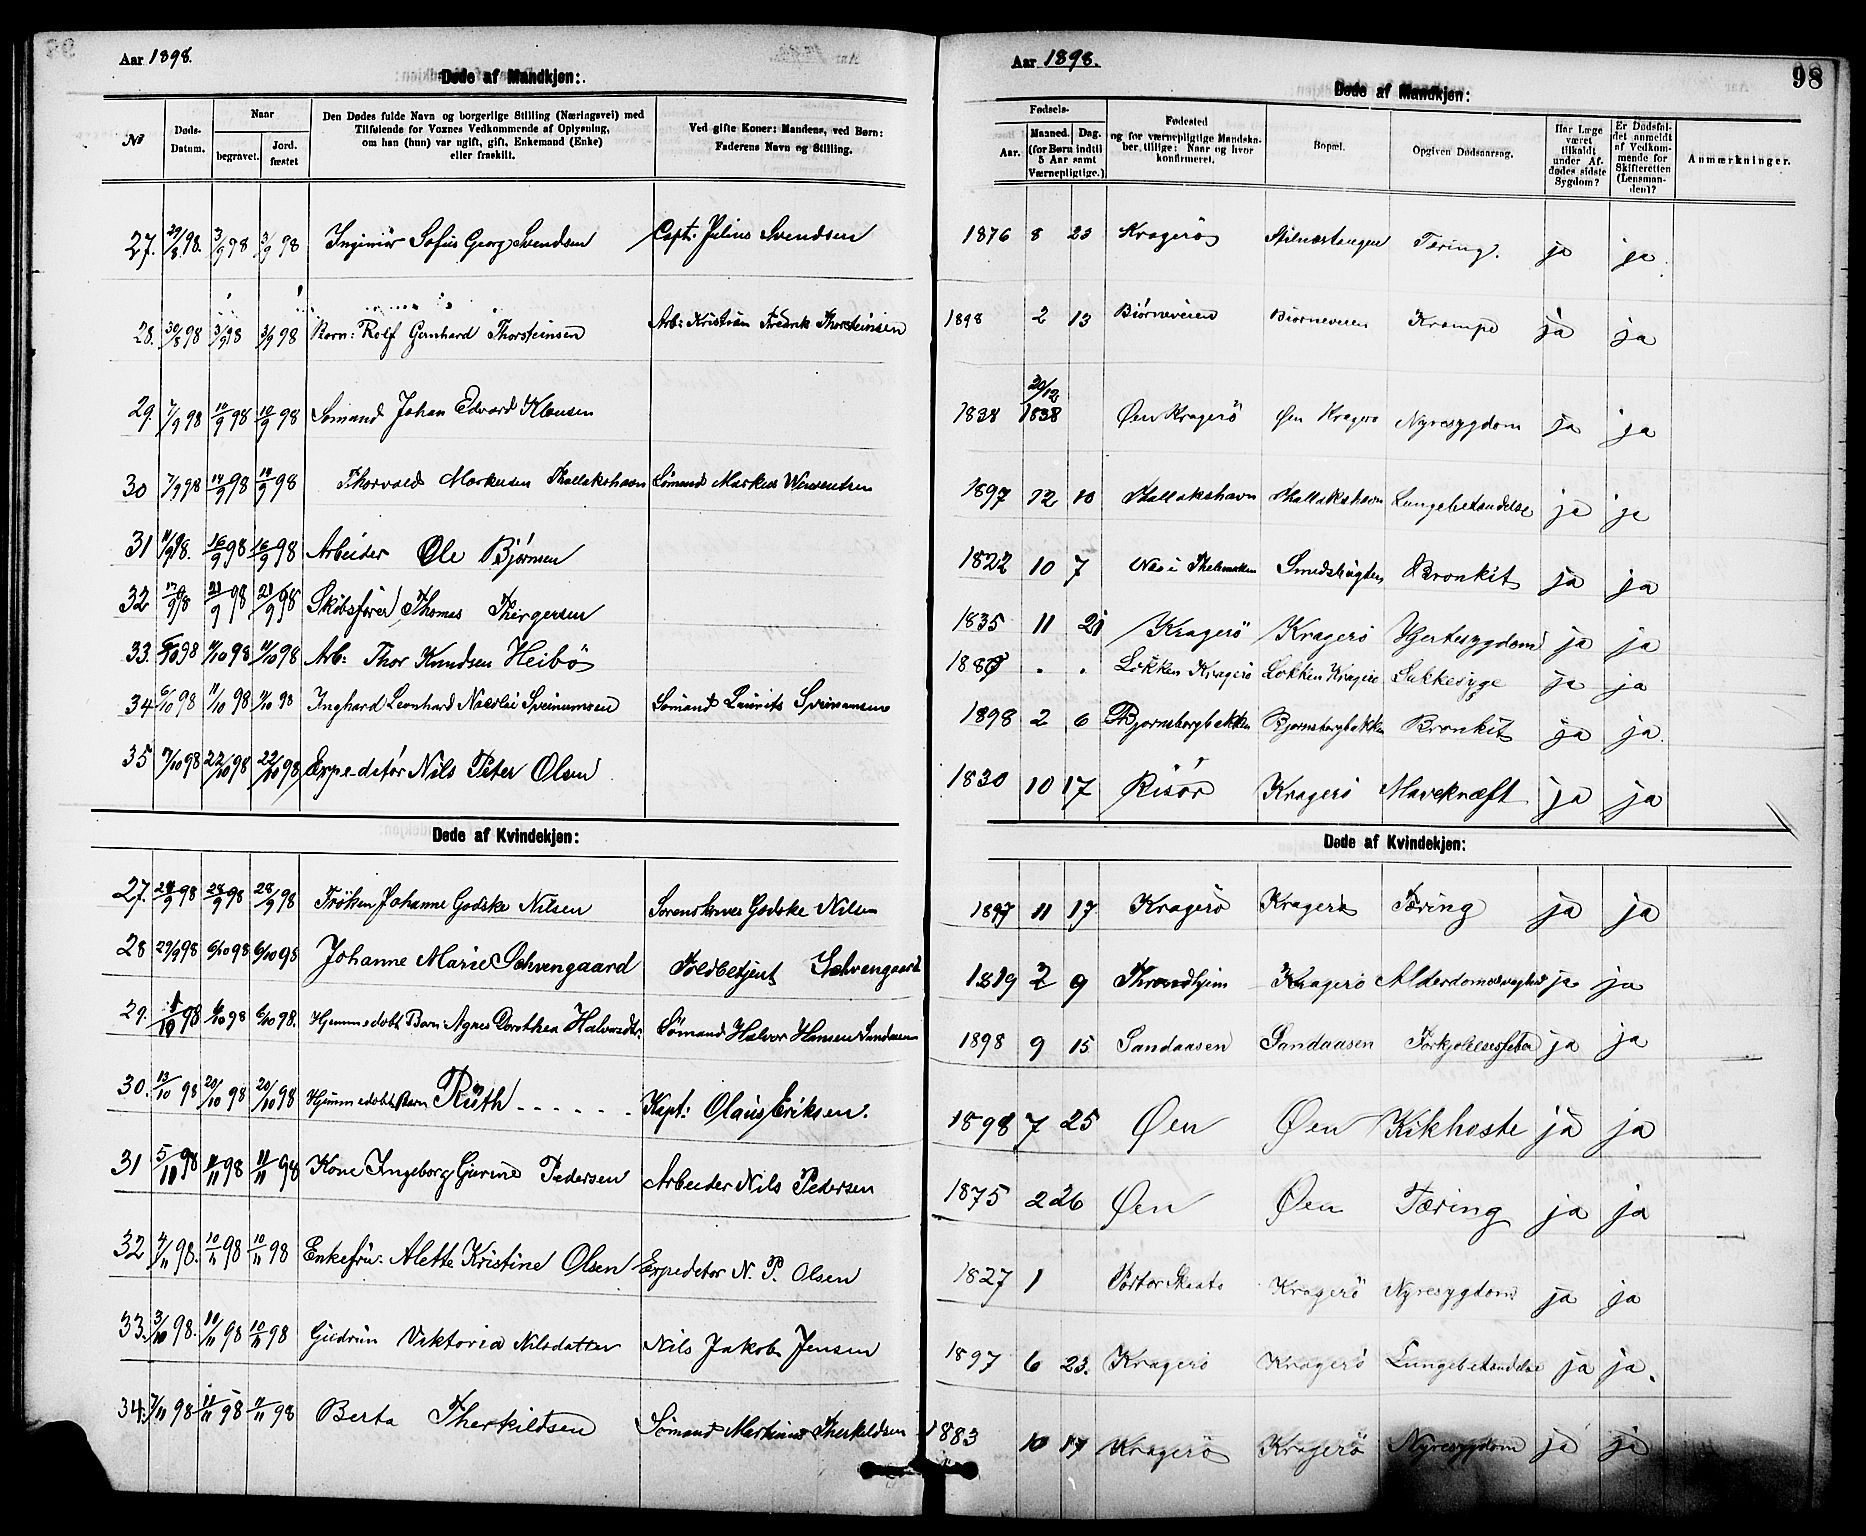 Aar 1898.
Døde af Mandkjøn:
№
Døds-Datum.
Naar
begravet.
Jord-fæstet
Den Dødes fulde Navn og borgerlige Stilling (Næringsvei) med
Tilføiende for Voxnes Vedkommende af Oplysning,
om han (hun) var ugift, gift, Enkemand (Enke)
eller fraskilt.
Ved gifte Koner: Mandens, ved Børn:
Faderens Navn og Stilling.
27. 29/8 98. 3/9 98 3/9 98 Ingeniör Sofus Georg Svendsen Capt: Julius Svendsen
28. 30/8 98 3/9 98 3/9 98 Barn: Rolf Gernhard Thorsteinsen Arb: Kristian Fredrik Thorsteinsen
29. 7/9 98 10/9 98 10/9 98 Sømand Johan Edvard Klausen
30 7/9 98 14/9 98 14/9 98 Thorvald Markusen Thallakshavn Sømand Markus
31 11/9 98. 16/9 98 16/9 98 Arbeider Ole Bjørnsen
32 17/9 98 21/9 98 21/9 98 Skibsfører Thomas Thergersen
33. 6/10 98 11/10 98 11/10 98 Arb: Thor Knudsen Heibö
34 6/10 98 11/10 98 11/10 98 Inghard Leonhard Nicolai Sømand Laurits
35 17/10 98 22/10 98 22/10 98 Expeditör Nils Peter Olsen
Døde af Kvindekjøn:
27. 24/9 98 28/9 98 28/9 98 Fröken Johanne Godske Nilsen Sorenskriver Godske Nilsen
28 29/9 98 6/10 98 6/10 98 Johanne Marie Toldbetjent
29. 1/10 98 6/10 98 6/10 98. Hjemmedøbt Barn: Agnes Dorothea Halvorsdtr. Sømand Halvor Hansen Sandaasen
30. 13/10 98 20/10 98 20/10 98 Hjemmedøbt Barn Ruth - - - - - - Kapt: Olaus Eriksen.
31 5/11 98 11/11 98 11/11 98 Kone Ingeborg Gurine Pedersen Arbeider Nils Pedersen
32 4/11 98. 10/11 98 10/11 98 Enkefru: Alette Kristine Olsen Expeditør N. P. Olsen
33. 3/10 98. 10/11 98 10/11 98 Gudrun Viktoria Nilsdatter Nils Jakob Jensen
34. 7/11 98 11/11 98 11/11 98 Berta Therkildsen Sømand Martinus Therkildsen
Aar 1898.
98
Døde af Mandkjøn:
Fødsels-
Aar.
Maaned. Dag.
(for Børn indtil
5 Aar samt
Værnepligtige.)
Fødested
og for værnepligtige Mandska-
ber tillige: Naar og hvor
konfirmeret.
Bopæl.
Opgiven Dødsaarsag.
Har Læge
været
tilkaldt
under Af-
dødes sidste
Sygdom?
Er Dødsfal-
det anmeldt
af Vedkom-
mende for
Skifteretten
(Lensman-
den)?
Anmærkninger.
1876 8 23 Kragerö Stilnestangen Tæring. ja ja.
1898 2 13 Biørneveien Biørneveien Krampe ja ja
1838 30/12 1838 Øen Kragerö Øen Kragerø Nyresygdom ja ja
1897 12 10 Thallakshavn Thallakshavn Lungebetændelse ja ja
1822 10 7 i Thelemarken Smedsbugten Bronkit ja ja
1835 11 21 Kragerö Kragerö Hjertesygdom ja ja
. . Lökken Kragerö Lökken Kragerö Sukkesyge ja ja
1898 2 6 Bjornsborgbakken Bjornsborgbakken Bronkit ja ja.
1830 10 17 Risör Kragerö Mavekræft ja ja
Døde af Kvindekjøn:
11 17 Kragerö Kragerö Tæring ja ja
1819 2 9 Throndhjem Kragerö Alderdomssvaghed ja ja
1898 9 15 Sandaasen Sandaasen Forkjølelsesfeber ja ja
1898 7 25 Øen Øen Kikhoste ja ja
1875 2 26 Øen Øen Tæring ja ja
1827 1 Portør Skaatø Kragerö Nyresygdom ja ja
1897 6 23. Kragerö Kragerö Lungebetændelse ja ja.
1883 10 17 Kragerö Kragerö Nyresygdom ja ja